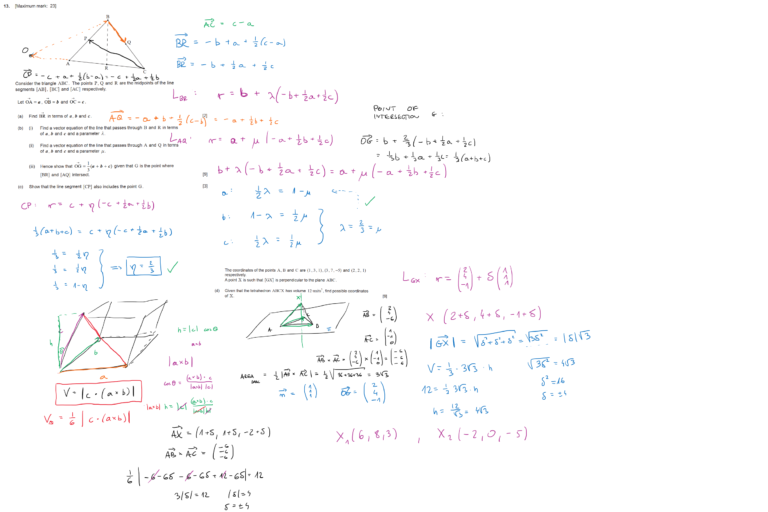 13. [Maximum mark: 23]
B
P
Q
O
A
R
C
CP = -c + a + ½(b-a) = -c + ½a + ½b
Consider the triangle ABC. The points P, Q and R are the midpoints of the line
segments [AB], [BC] and [AC] respectively.
Let OA = a, OB = b and OC = c.
(a) Find BR in terms of a, b and c.
[2]
(b) (i) Find a vector equation of the line that passes through B and R in terms
of a, b and c and a parameter λ.
(ii) Find a vector equation of the line that passes through A and Q in terms
of a, b and c and a parameter μ.
(iii) Hence show that OG = 1/3 (a + b + c) given that G is the point where
[BR] and [AQ] intersect.
[9]
(c) Show that the line segment [CP] also includes the point G.
[3]
AC = c - a
BR = -b + a + ½(c-a)
BR = -b + ½a + ½c
L_BR : r = b + λ(-b + ½a + ½c)
AQ = -a + b + ½(c-b) = -a + ½b + ½c
L_AQ : r = a + μ(-a + ½b + ½c)
b + λ(-b + ½a + ½c) = a + μ(-a + ½b + ½c)
a: ½λ = 1 - μ ✓
b: 1 - λ = ½μ
c: ½λ = ½μ
λ = 2/3 = μ
POINT OF
INTERSECTION G:
OG = b + 2/3(-b + ½a + ½c)
= 1/3b + 1/3a + 1/3c = 1/3(a+b+c)
CP: r = c + η(-c + ½a + ½b)
1/3(a+b+c) = c + η(-c + ½a + ½b)
1/3 = ½η
1/3 = ½η
1/3 = 1-η
⇒ η = 2/3 ✓
The coordinates of the points A, B and C are (1, 3, 1), (3, 7, -5) and (2, 2, 1)
respectively.
A point X is such that [GX] is perpendicular to the plane ABC.
(d) Given that the tetrahedron ABCX has volume 12 units³, find possible coordinates
of X.
[9]
h
c
b
a
V = |c · (a×b)|
V = 1/6 |c · (a×b)|
h = |c| cosθ
a×b
|a×b|
cosθ = (a×b)·c / |a×b||c|
X
A
AB = (2, 4, -6)
AC = (1, -1, 0)
AB × AC = (2, 4, -6) × (1, -1, 0) = (-6, -6, -6)
AREA = ½|AB × AC| = ½√36+36+36 = 3√3
n = (1, 1, 1)
OG = (2, 4, -1)
L_GX : r = (2, 4, -1) + δ(1, 1, 1)
X (2+δ, 4+δ, -1+δ)
|GX| = √δ²+δ²+δ² = √3δ² = |δ|√3
V = 1/3 · 3√3 · h
12 = 1/3 3√3 · h
h = 12/√3 = 4√3
√3δ² = 4√3
δ² = 16
δ = ±4
X₁(6, 8, 3) , X₂(-2, 0, -5)
AX = (1+δ, 1+δ, -2+δ)
AB × AC = (-6, -6, -6)
1/6 |-6-6δ -6-6δ +12-6δ| = 12
3|δ| = 12 |δ| = 4
δ = ±4